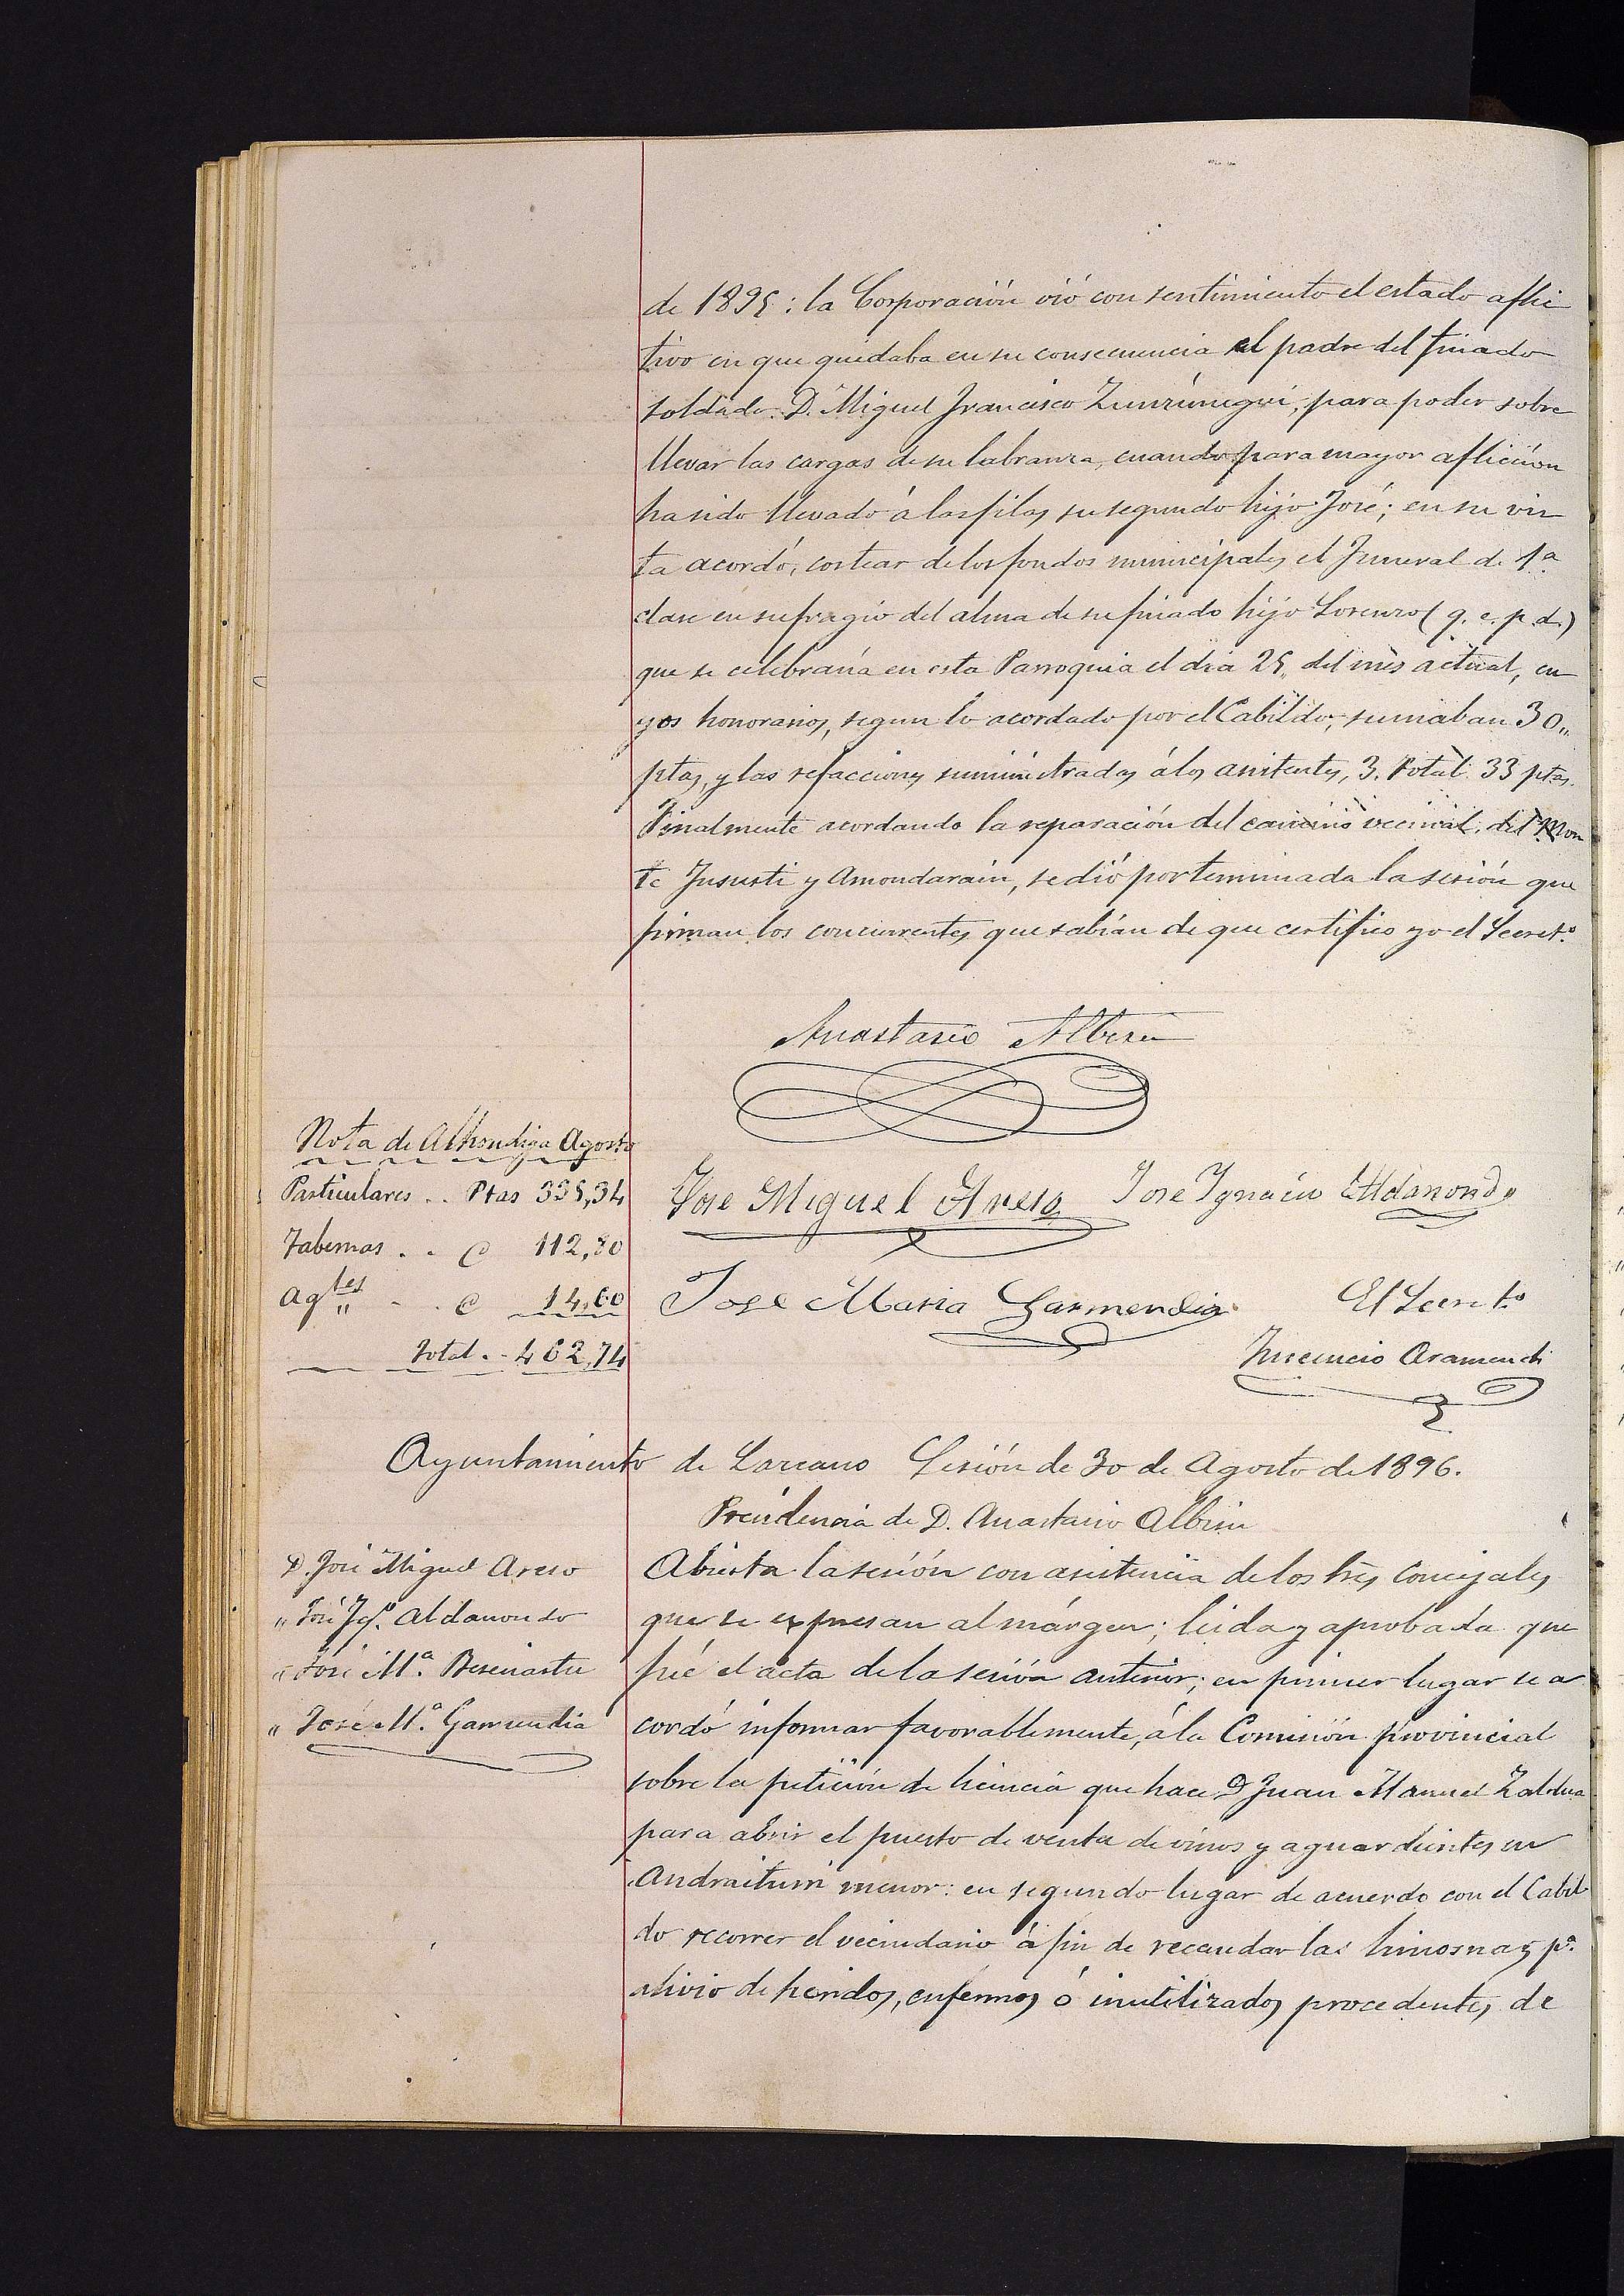 de 1895: la Corporación vió con sentimiento el estado aflic
tivo en que quedaba en su consecuencia el padre del finado
soldado D. Miguel Francisco Zunzunegui, para poder sobre
llevar las cargas de su labranza, cuando para mayor aflicción
ha sido llevado á las filas su segundo hijo José; en su vis
ta acordó, costear de los fondos municipales el Funeral de 1ª
clase en sufragio del alma de su finado hijo Lorenzo (q. e. p. d.)
que se celebraría en esta Parroquia el dia 25,, del mes actual, cu
yos honorarios, segun lo acordado por el Cabildo, sumaban 30,,
ptas, y las refacciones suministradas á los asistentes, 3. Total 33 ptas.
Finalmente acordando la reparación del camino vecinal del Mon
te Jususti y Amondarain, se dió por terminada la sesión que
firman los concurrentes que sabían de que certifico yo el Secretº
Anastasio Albisu
Nota de Alhondiga Agosto
Particulares .. Ptas 335,34
Tabernas .. @ 112,80
Agtes " .. @ 14,60
Total .. 462,74
Jose Miguel Areso Jose Ygnacio Aldanondo
Jose Maria Garmendia El Secretº
Inocencio Aramendi
Ayuntamiento de Lazcano Sesión de 30 de Agosto de 1896.
Presidencia de D. Anastasio Albisu
D. José Miguel Areso
" José Igº. Aldanondo
" José Mª. Beseiartu
" José Mª. Garmendia
Abierta la sesión con asistencia de los tres Concejales
que se expresan al márgen; leida y aprobada que
fué el acta de la sesión anterior; en primer lugar se a
cordó informar favorablemente, á la Comisión provincial
sobre la petición de licencia que hace D Juan Manuel Zaldua
para abrir el puesto de venta de vinos y aguardientes en
Andraiturri menor: en segundo lugar de acuerdo con el Cabil
do recorrer el vecindario á fin de recaudar las limosnas pª.
alivio de heridos, enfermos ó inutilizados procedentes de